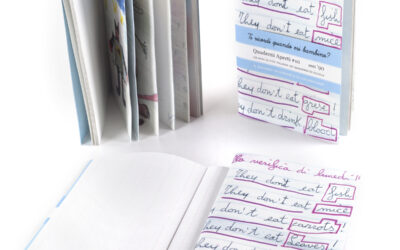 They don't eat fish
They don't eat mice
Ti ricordi quando eri bambino?
Quaderni Aperti #10
They don't eat
They don't drink blood!
La verifica di lunedì!!
They don't eat fish
They don't eat mice
They don't eat carrots!
They don't eat leaves!